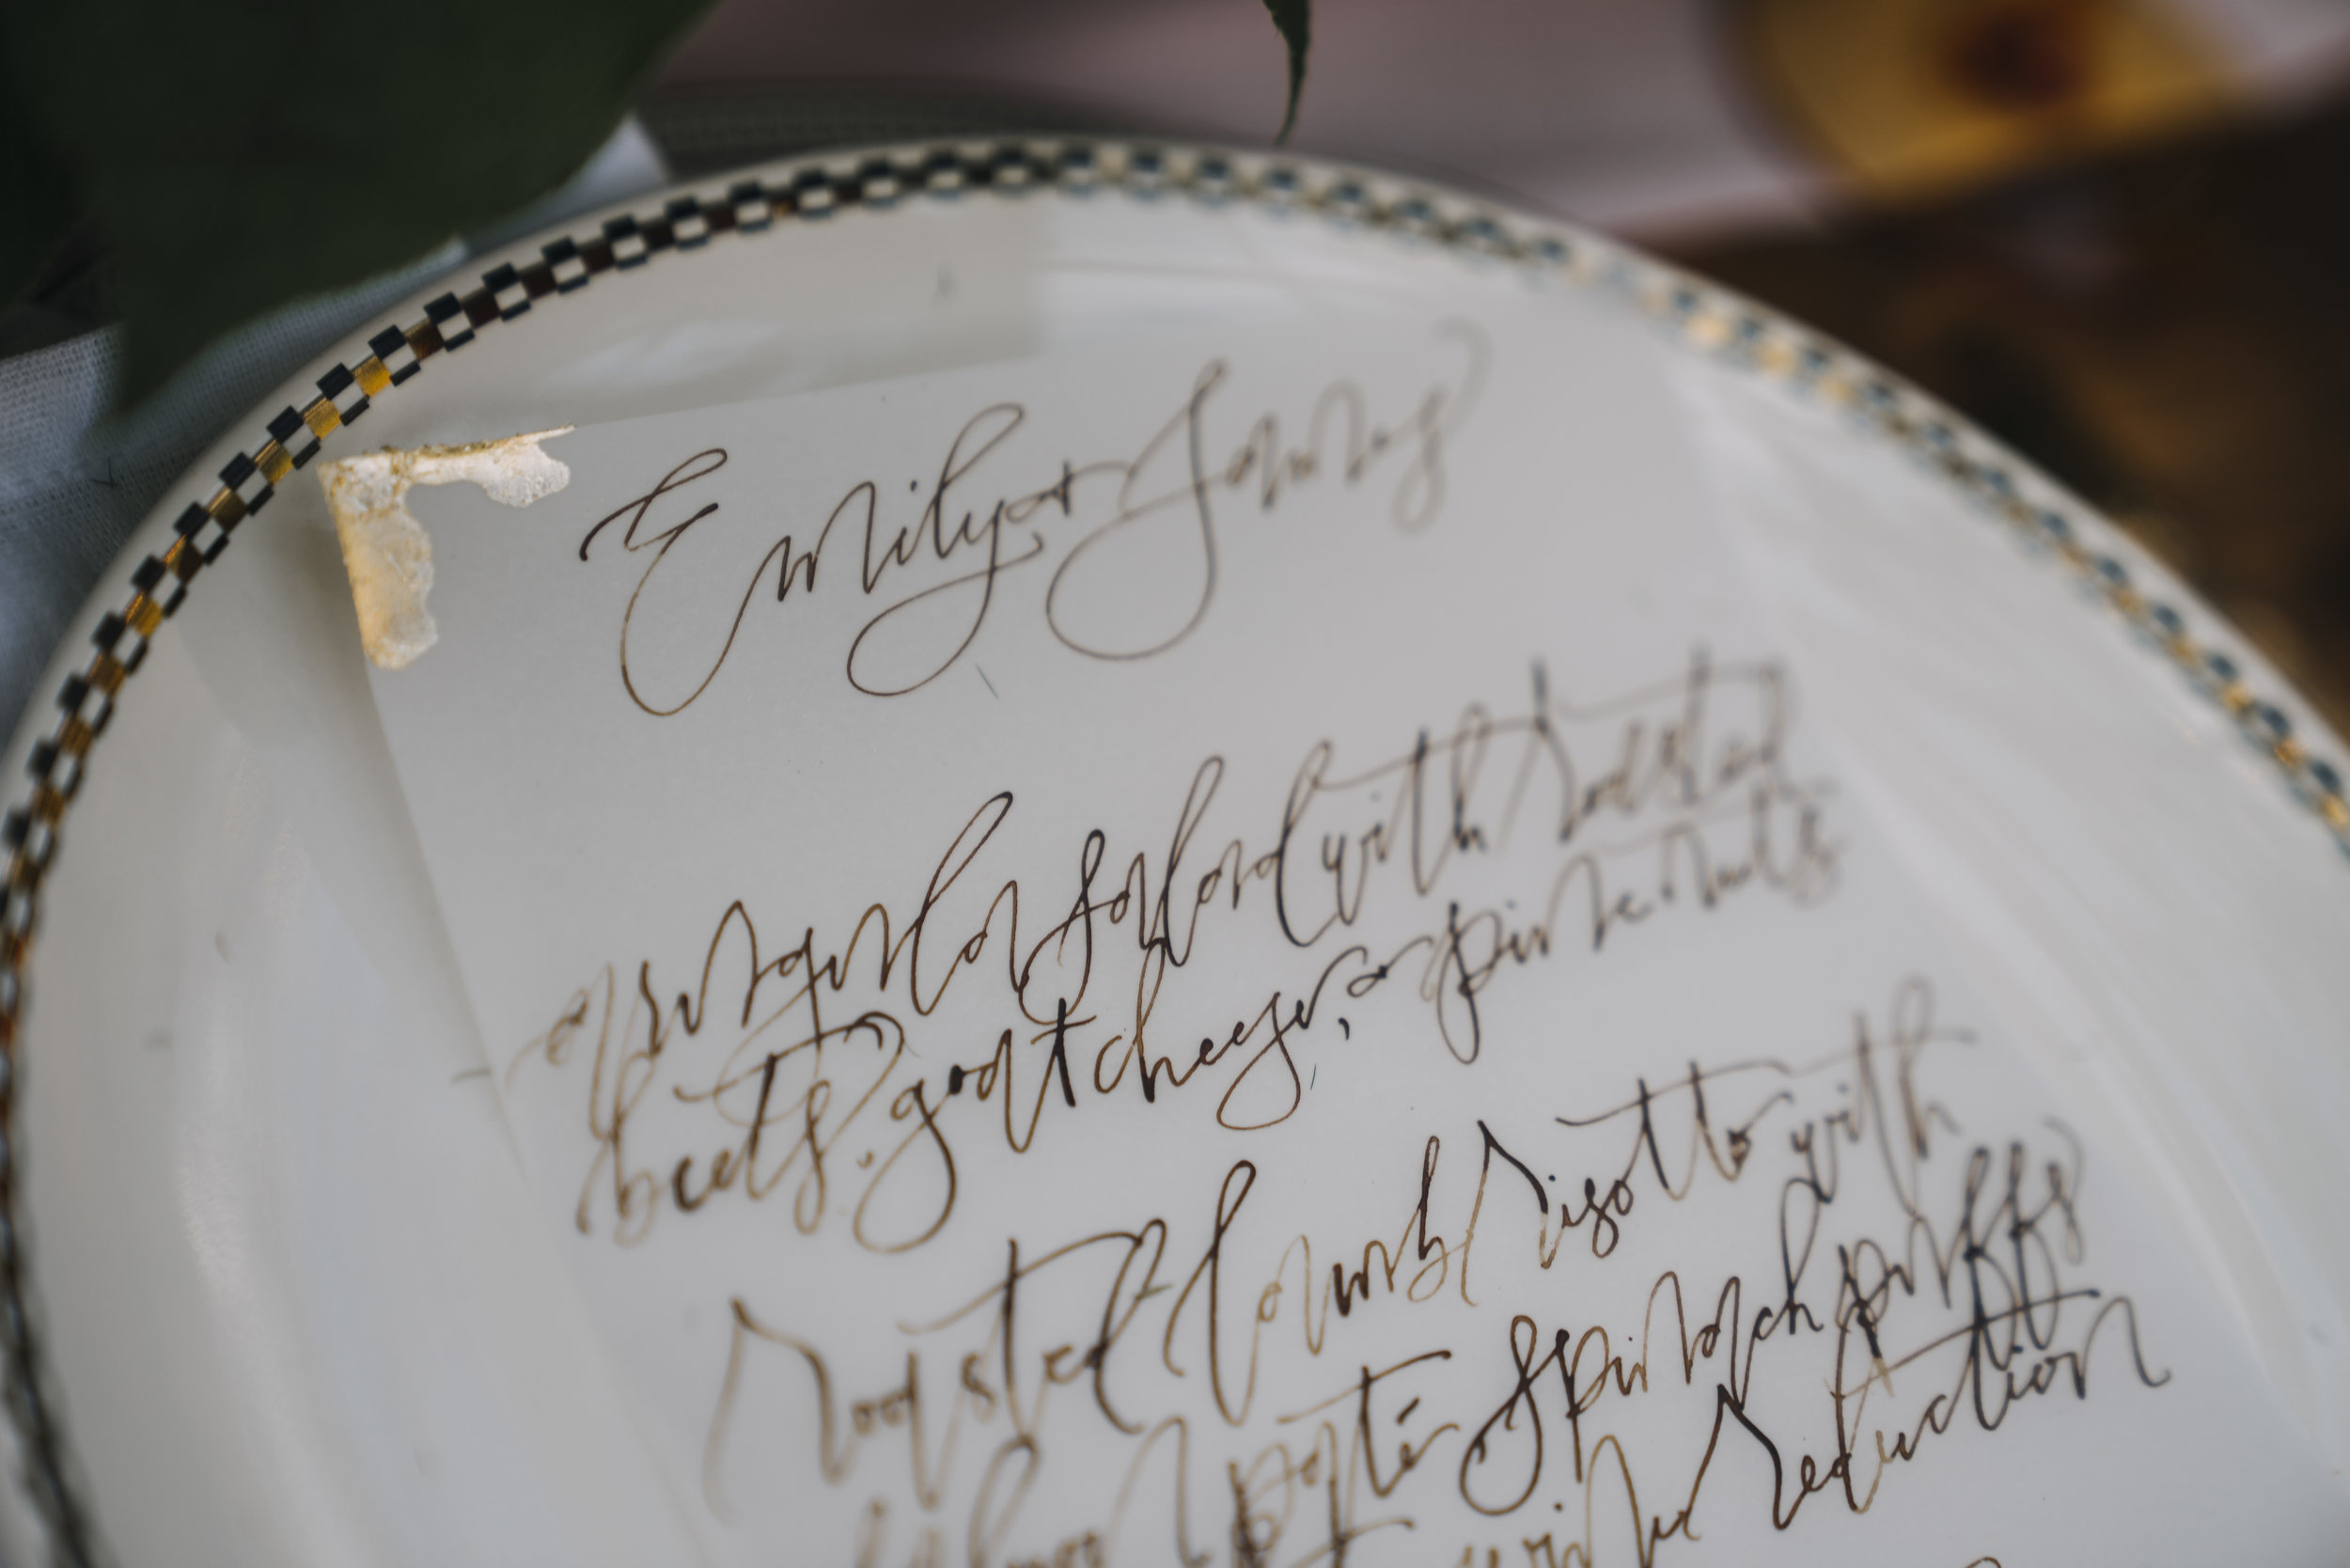 Emily + James
arugula salad with roasted
beets, goat cheese, & pine nuts
roasted lamb risotto with
paté spinach puffs
wine reduction